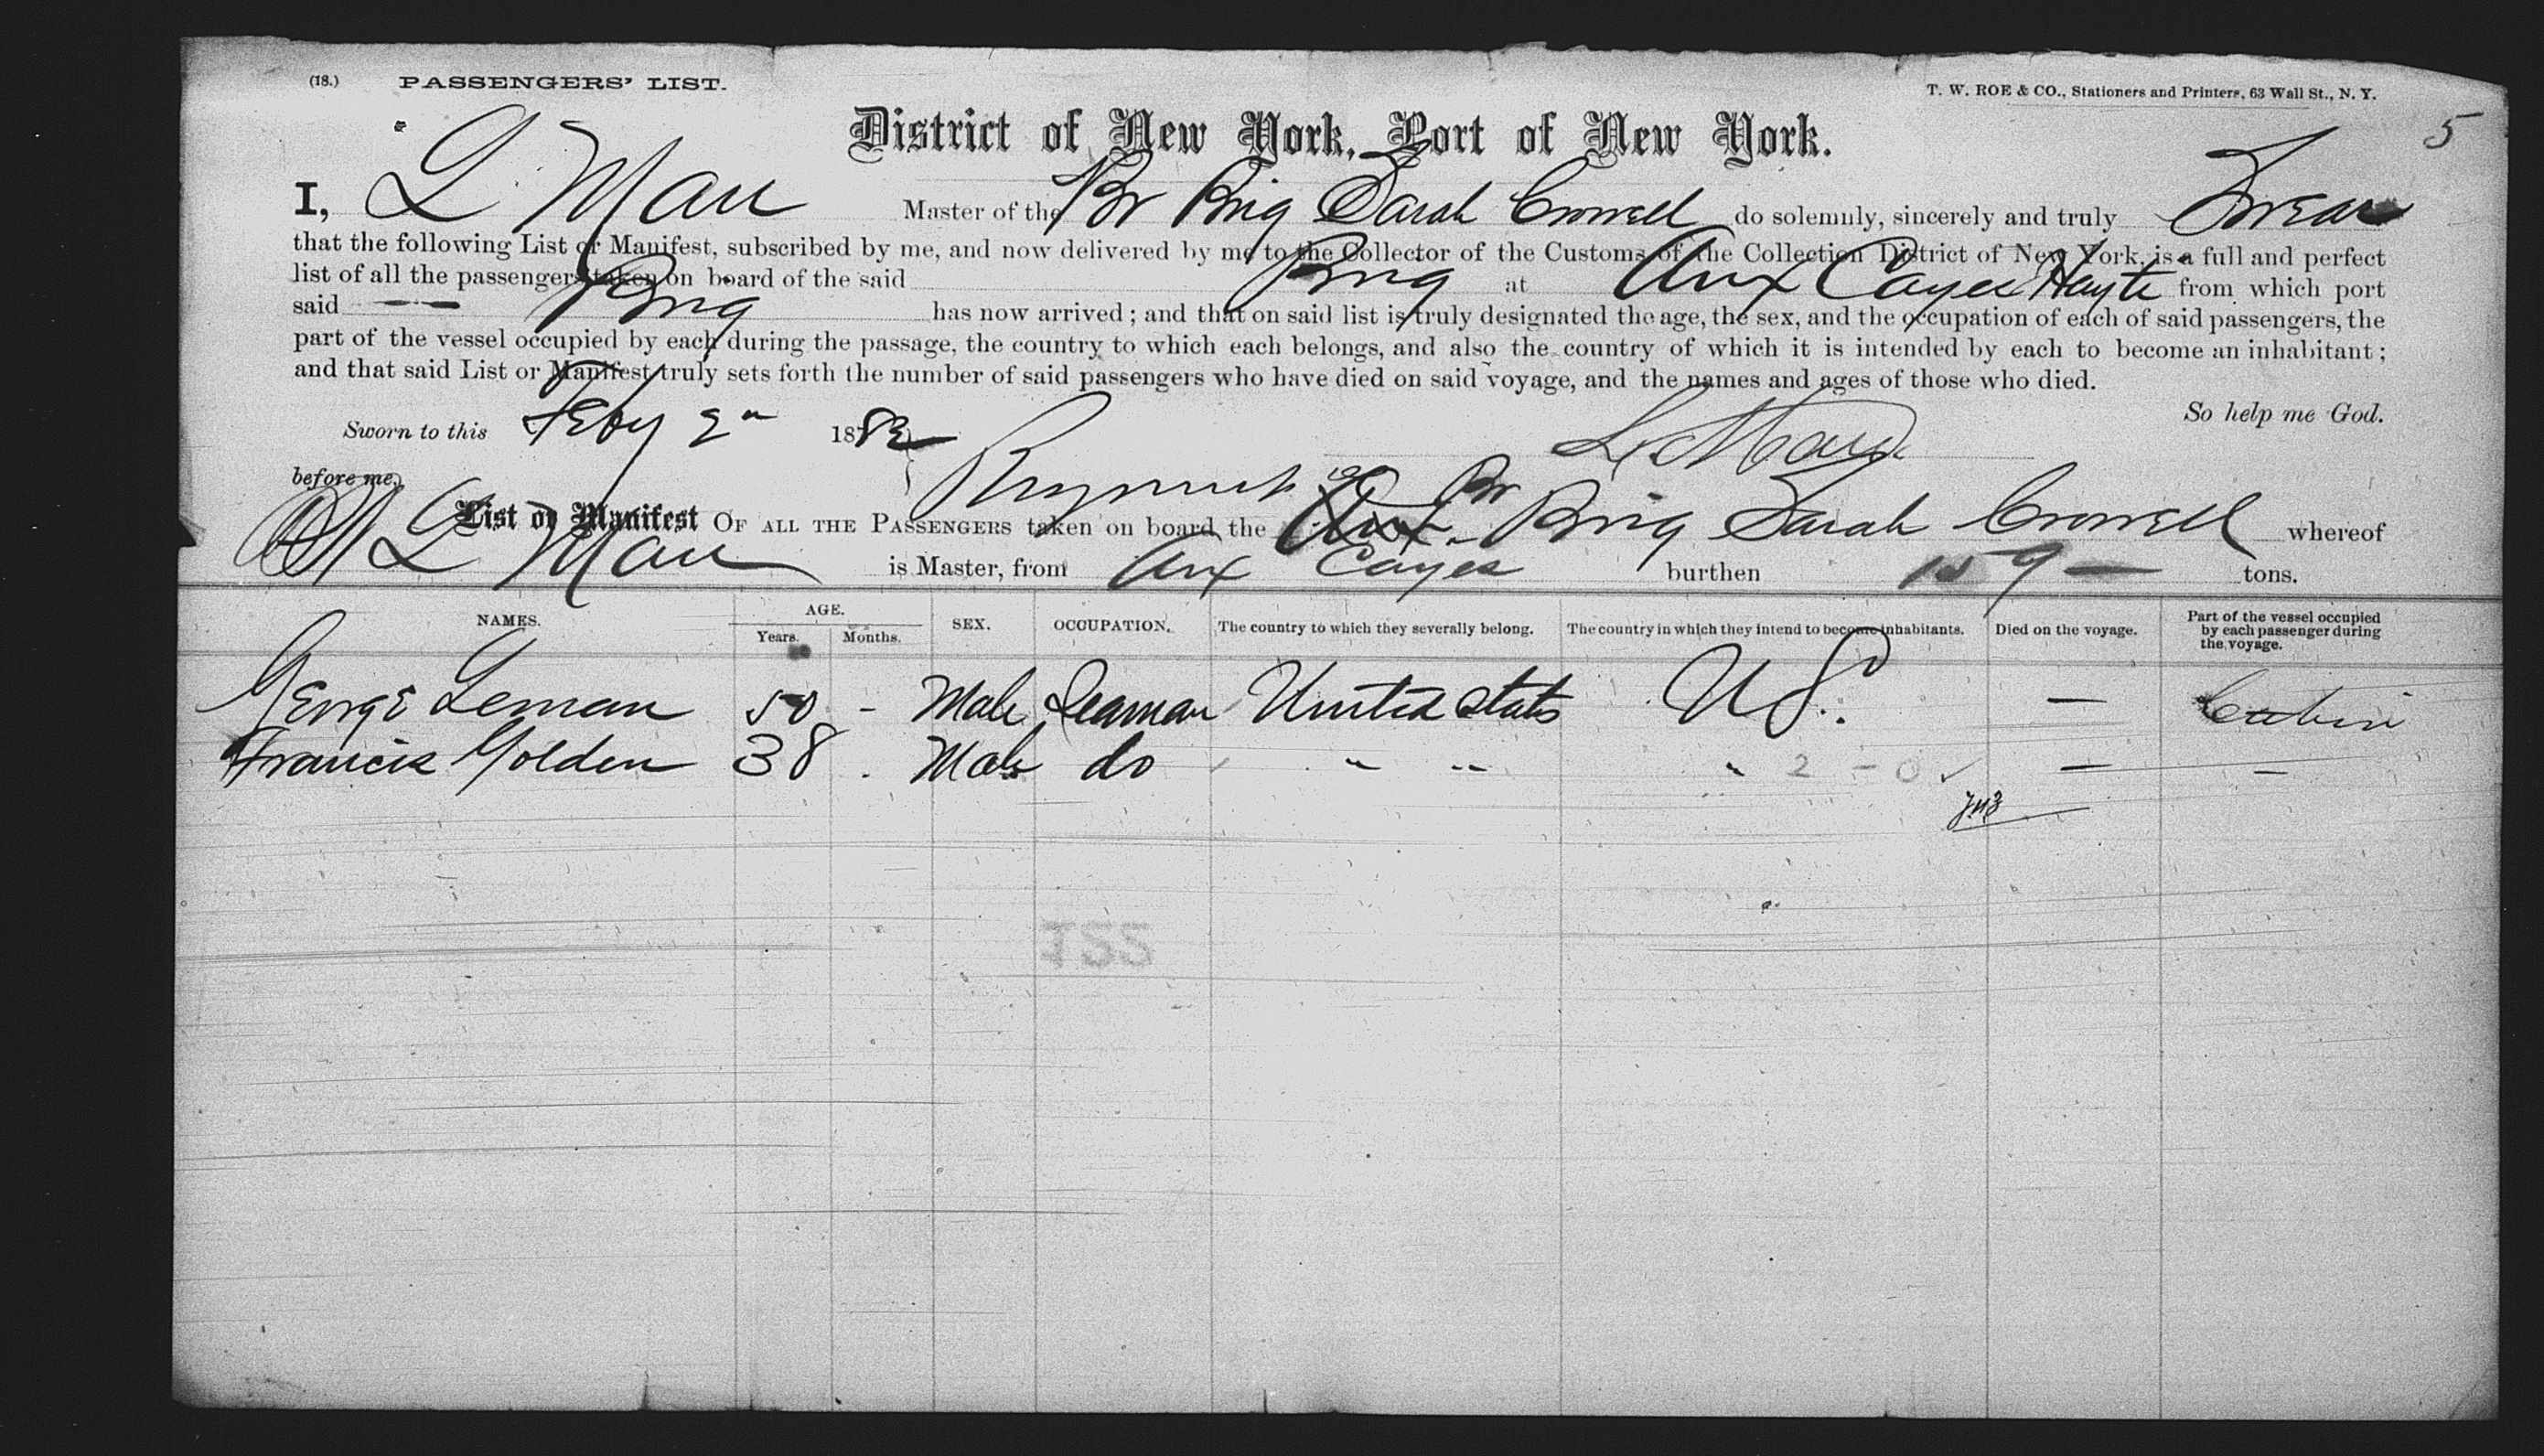 (18.) PASSENGERS' LIST.
T. W. ROE & CO., Stationers and Printers, 63 Wall St., N. Y.
5
District of New York, Port of New York.
I, L Man Master of the Br Brig Sarah Crowell do solemnly, sincerely and truly Swear
that the following List or Manifest, subscribed by me, and now delivered by me to the Collector of the Customs of the Collection District of New York, is a full and perfect
list of all the passengers taken on board of the said Brig at Aux Cayes Hayte from which port
said Brig has now arrived; and that on said list is truly designated the age, the sex, and the occupation of each of said passengers, the
part of the vessel occupied by each during the passage, the country to which each belongs, and also the country of which it is intended by each to become an inhabitant;
and that said List or Manifest truly sets forth the number of said passengers who have died on said voyage, and the names and ages of those who died.
So help me God.
Sworn to this Feby 2 1882
before me,
List or Manifest OF ALL THE PASSENGERS taken on board the Br Brig Sarah Crowell whereof
L Man is Master, from Aux Cayes burthen 159 — tons.
NAMES. AGE. Years. Months. SEX. OCCUPATION. The country to which they severally belong. The country in which they intend to become inhabitants. Died on the voyage. Part of the vessel occupied by each passenger during the voyage.
George Leman 50 - Male Seaman United States U S. — Cabin
Francis Golden 38 . Male do " " " 2 - 0 ✓ — —